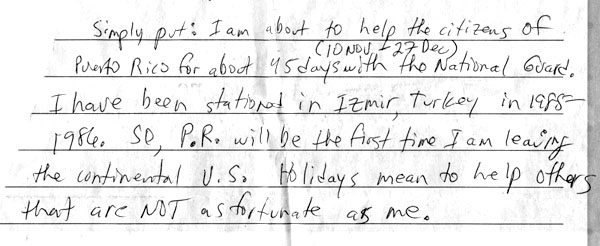 Simply put: I am about to help the citizens of
(10 NOV - 27 Dec)
Puerto Rico for about 45 days with the National Guard.
I have been stationed in Izmir, Turkey in 1985-
1986. SO, P.R. will be the first time I am leaving
the continental U.S. Holidays mean to help others
that are NOT as fortunate as me.